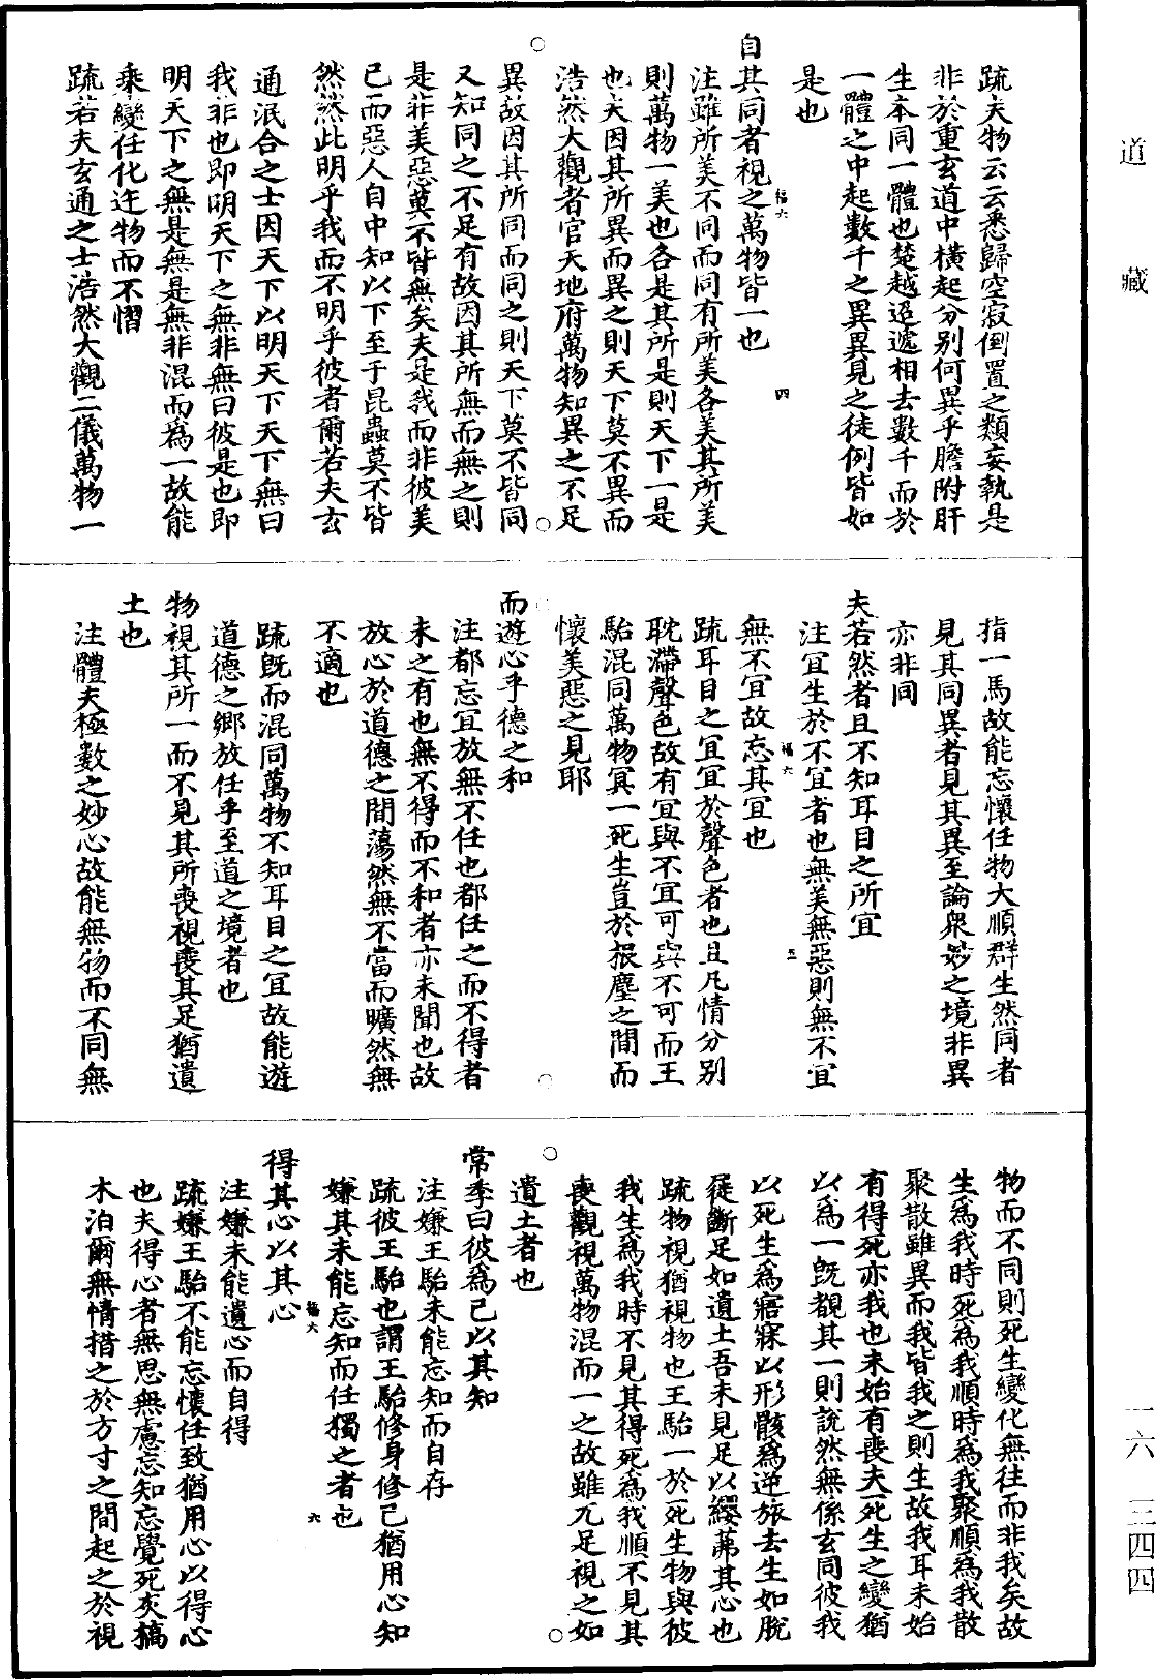 疏夫物云云悉歸空寂倒置之類妄執是
非於重玄道中橫起分別何異乎膽附肝
生本同一體也楚越迢遞相去數千而於
一體之中起數千之異異見之徒例皆如
是也
自其同者視之萬物皆一也
注雖所美不同而同有所美各美其所美
則萬物一美也各是其所是則天下一是
也夫因其所異而異之則天下莫不異而
浩然大觀者官天地府萬物知異之不足
異故因其所同而同之則天下莫不皆同
又知同之不足有故因其所無而無之則
是非美惡莫不皆無矣夫是我而非彼美
己而惡人自中知以下至于昆蟲莫不皆
然然此明乎我而不明乎彼者爾若夫玄
通泯合之士因天下以明天下天下無曰
我非也即明天下之無非無曰彼是也即
明天下之無是無是無非混而為一故能
乘變任化迕物而不慴
疏若夫玄通之士浩然大觀二儀萬物一
指一馬故能忘懷任物大順群生然同者
見其同異者見其異至論眾妙之境非異
亦非同
夫若然者且不知耳目之所宜
注宜生於不宜者也無美無惡則無不宜
無不宜故忘其宜也
疏耳目之宜宜於聲色者也且凡情分別
耽滯聲色故有宜與不宜可與不可而王
駘混同萬物冥一死生豈於根塵之間而
懷美惡之見耶
而遊心乎德之和
注都忘宜故無不任也都任之而不得者
未之有也無不得而不和者亦未聞也故
放心於道德之間蕩然無不當而曠然無
不適也
疏既而混同萬物不知耳目之宜故能遊
道德之鄉放任乎至道之境者也
物視其所一而不見其所喪視喪其足猶遺
土也
注體夫極數之妙心故能無物而不同無
物而不同則死生變化無往而非我矣故
生為我時死為我順時為我聚順為我散
聚散雖異而我皆我之則生故我耳未始
有得死亦我也未始有喪夫死生之變猶
以為一既覩其一則說然無係玄同彼我
以死生為寤寐以形骸為逆旅去生如脫
屣斷足如遺土吾未見足以纓茀其心也
疏物視猶視物也王駘一於死生物與彼
我生為我時不見其得死為我順不見其
喪觀視萬物混而一之故雖兀足視之如
遺土者也
常季曰彼為己以其知
注嫌王駘未能忘知而自存
疏彼王駘也謂王駘修身修己猶用心知
嫌其未能忘知而任獨之者也
得其心以其心
注嫌未能遺心而自得
疏嫌王駘不能忘懷任致猶用心以得心
也夫得心者無思無慮忘知忘覺死灰槁
木泊爾無情措之於方寸之間起之於視
福六
四
福六
五
福六
六
道藏
一六
三四四